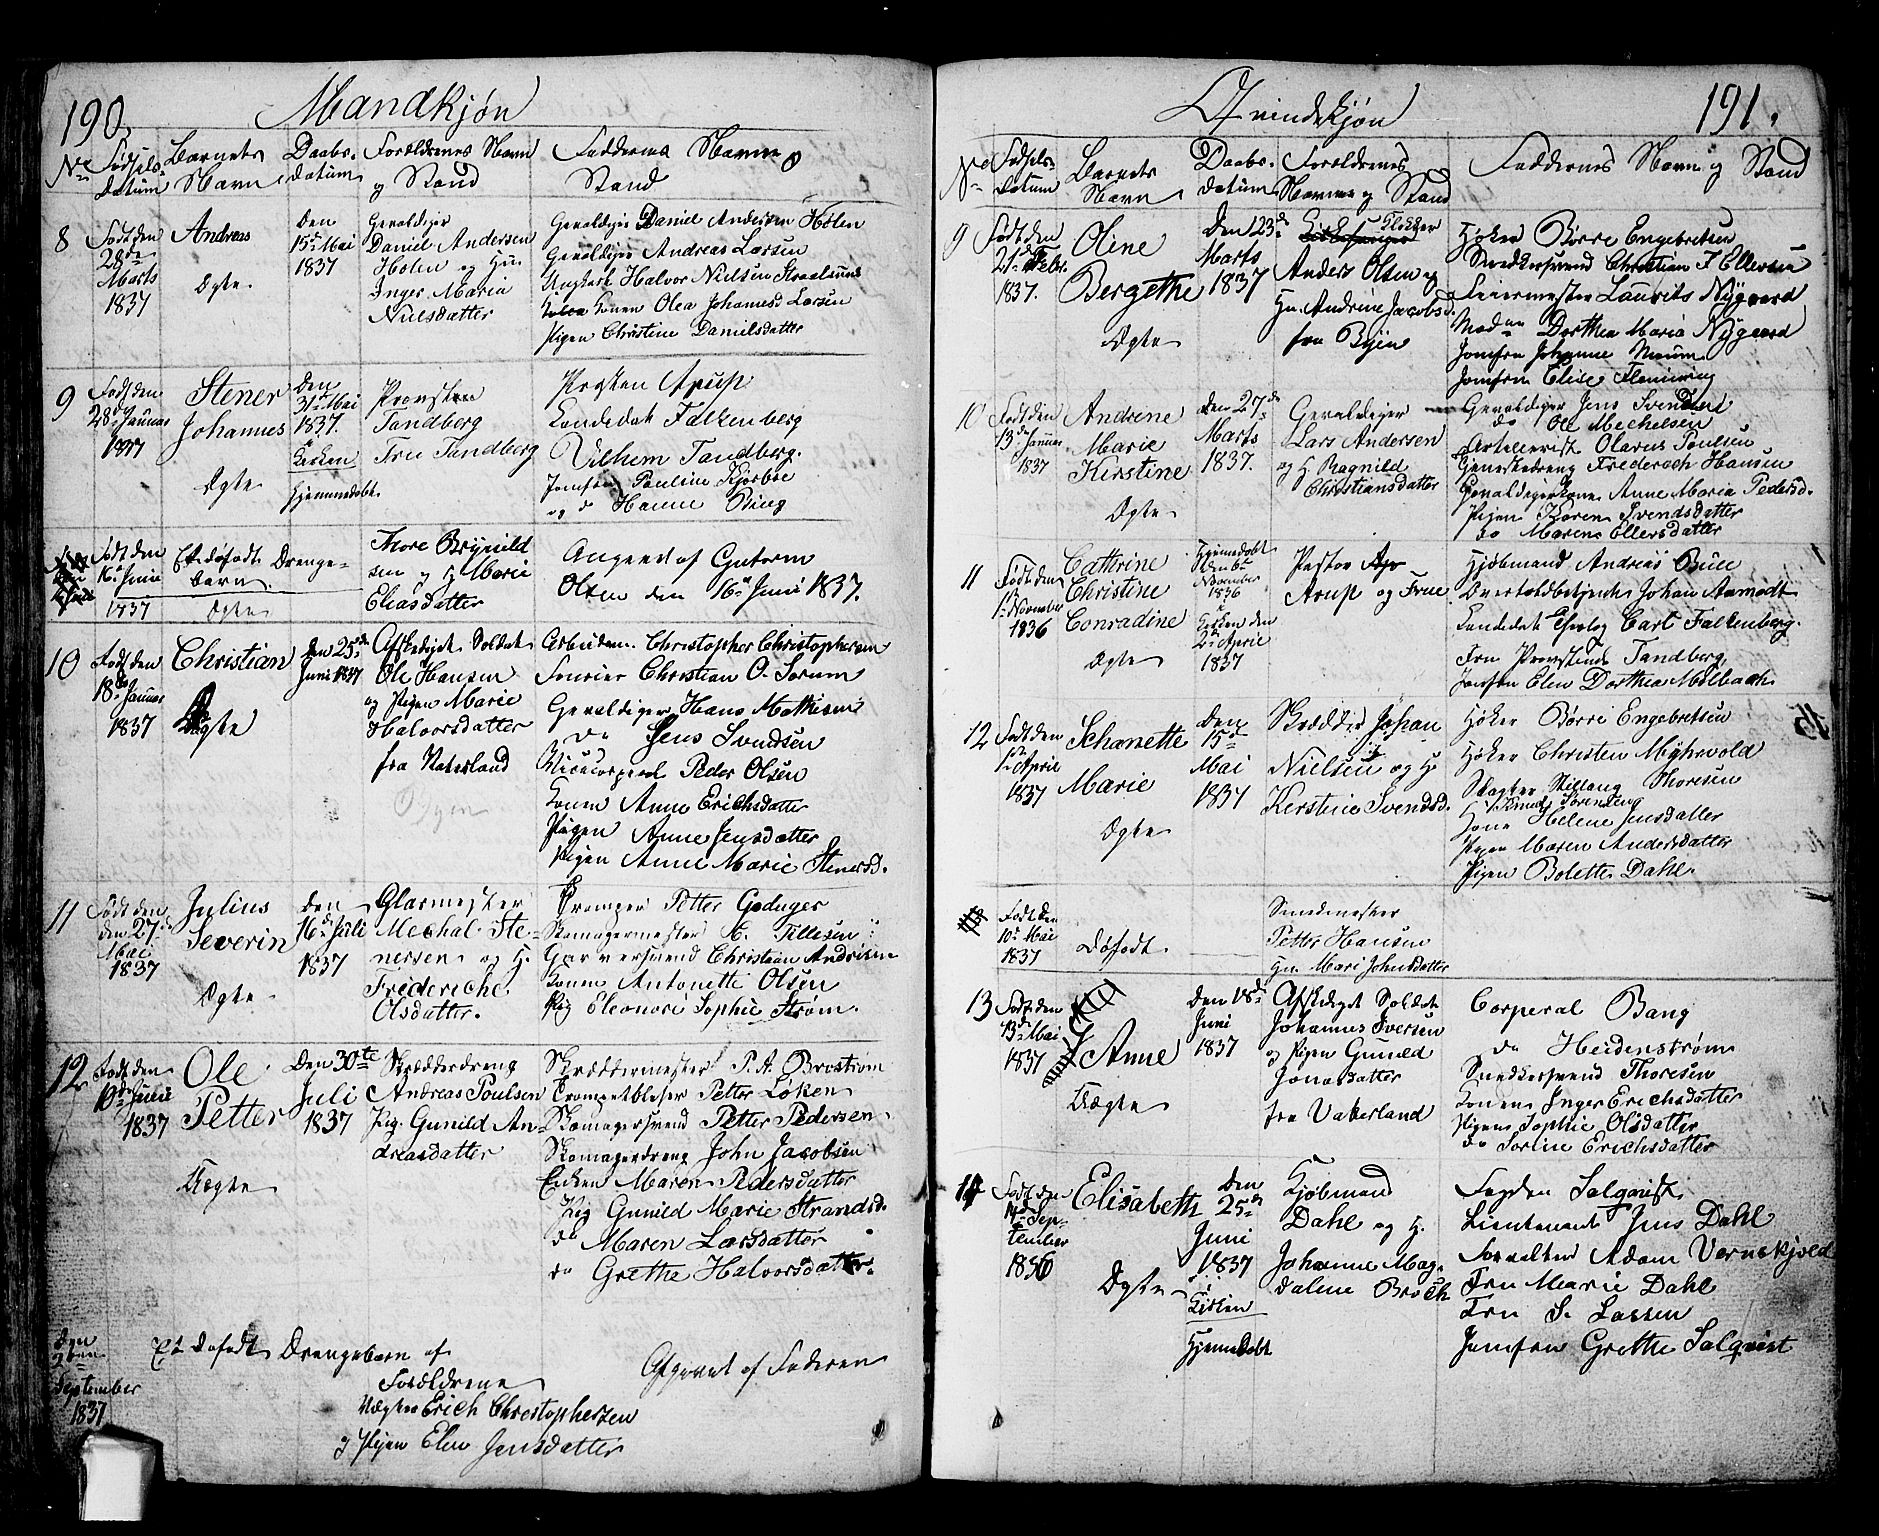 190.
Mandkjøn
No Fødsels Datum
Barnets Navn
Daabs Datum
Forældrenes Navn og Stand
Faddernes Navn og Stand
8
Født den 28de Marts 1837
Andreas
Ægte
Den 15de Mai 1837
Gevaldiger
Daniel Andersen
Holen og Hu.
Inger Maria
Nielsdatter
Gevaldiger Daniel Andersen Holen
Gevaldiger Andreas Larsen
Ungkarl Halvor Nielsen
Konen Olea Johannesd Larsen
Pigen Christine Danielsdatter
9
Født den 28de Januar 1837
Stener
Johannes
Ægte
Den 31te Mai 1837.
Kirken
Hjemmedøbt.
Provsten
Tandberg
Fru Tandberg
Presten Arup
Candidat Falkenberg
Vilhem Tandberg.
Jomfru Pauline Kjerboe
og do Hanne Bing
Født den 16de Juni 1837
Et dødfødt Drengebarn.
Ægte
Thore Brynild
sen og H Marie
Eliasdatter
Angived af Gutorm
Olsen den 16de Juni 1837.
10
Født den 18de Januar 1837
Christian
Uægte
Den 25de Juni 1837
Afskediget Soldat
Ole Hansen
og Pigen Marie
Halvorsdatter
fra Vaterland
Arbeidsm. Christopher Christophersen
Fourier Christian O. Sørum
Gevaldiger Hans Mathisen
do Jens Svendsen
Vicecorperal Peder Olsen
Konen Anne Erichsdatter
Pigen Anne Jensdatter
Pigen Anne Marie Stenersd.
11
Født den
den 27de
Mai
1837
Julius
Severin
Ægte
Den
16de Juli
1837
Glarmester
Mechal Ste-
nersen og H.
Frideriche
Olsdatter.
Tromper Petter Goduger
Skomagermester A. Tillesen
Garversvend Christian Andersen
Konen Antonette Olsen
Pig Eleonore Sophie Strøm.
12
Født den
10de Juni
1837
Ole
Petter
Uægte
Den 30te
Juli
1837
Skrædderdreng
Andreas Poulsen
Pig. Gunild An-
dreasdatter
Skræddermester P. A. Brostrøm
Trompetblæser Petter Løken
Skomagersvend Petter Pedersen
Skomagerdreng John Jacobsen
Enken Maren Pedersdatter
Pig Gunild Marie Strandsd.
do Maren Larsdatter
do Grethe Halvorsdatter.
Den
2den
September
1837
Et dødfødt Drengebarn af
Forældrene
Vægter Erich Christophersen
og Pigen Elen Jensdatter
Opgivet af Faderen
191.
Qvindekjøn
No Fødsels Datum
Barnets Navn
Daabs Datum
Forældrenes Navne og Stand
Faddernes Navn og Stand
9
Født den
21de Febr.
1837.
Oline
Bergethe
Ægte
Den 23de
Marts
1837
Klokker
Anders Olsen og
Hu. Andrine Jacobsd.
fra Byen
Høker Børre Engebretsen
Snedkersvend Christian F Ellersen
Feiermester Laurits Nygaard
Madme Dorthea Maria Nygaard
Jomfru Johanne Meum
Jomfru Elise Flemming
10
Født den
13de Januar
1837
Andrene
Marie
Kirstine
Ægte
Den 27de
Marts
1837.
Gevaldiger
Lars Andersen
og H Ragnild
Christiansdatter
Gevaldiger Jens Svendsen
do Ole Mechelsen
Artellerist Olarus Poulsen
Tjenestedreng Frederich Hansen
Gevaldigerkone Anne Maria Pedersd.
Pigen Karen Svendsdatter
do Maren Ellersdatter
11
Født den
1de November
1836
Cathrine
Christine
Conradine
Ægte
Hjemmedøbt
Den 6te
November
1836
Kirken den
2de Aprie
1837
Pastor
Arup og Frue
Kjøbmand Andreas Bull
Overtoldbetjent Johan Aamodt
Candidat Theolog Carl Falkenberg.
Fru Provstinde Tandberg,
Jomfru Elen Dorthea Mølbach.
12
Født den
1de Aprie
1837
Schanette
Marie
Ægte
Den
15de
Mai
1837
Skrædder Johan
Nielsen og H.
Kirstine Svendsd.
Høker Børre Engebretsen
Høker Christen Myhrvold
Slagter Thoresen
Kone Helene Jensdatter
Pigen Maren Andersdatter
Pigen Bolette Dahl.
Født den
10de Mai
1837
Dødfødt.
Smedmester
Petter Hansen
Hu. Mari Johnsdatter
13
Født den
13de Mai
1837
Anne
Uægte
Den 18de
Juni
1837
Afskediget Soldat
Johannes Iversen
og Pigen Gunild
Jonasdatter
fra Vaterland
Corperal Bang
do Heidenstrøm
Snedkersvend Thoresen
Konen Inger Erichsdatter
Pigen Sophie Olsdatter
do Sorline Erichsdatter
14
Født den
14de Sep-
tember
1836
Elisabeth
Ægte
Den
25de
Juni
1837
Kirken
Hjemmedøbt
Kjøbmand
Dahl og H.
Johanne Mag-
dalene Broch
Fogden Salqvist
Lieutenant Jens Dahl
Forvalter Adam Vernskjold
Fru Marie Dahl
Fru S. Lassen
Jomfru Grethe Salqvist
15